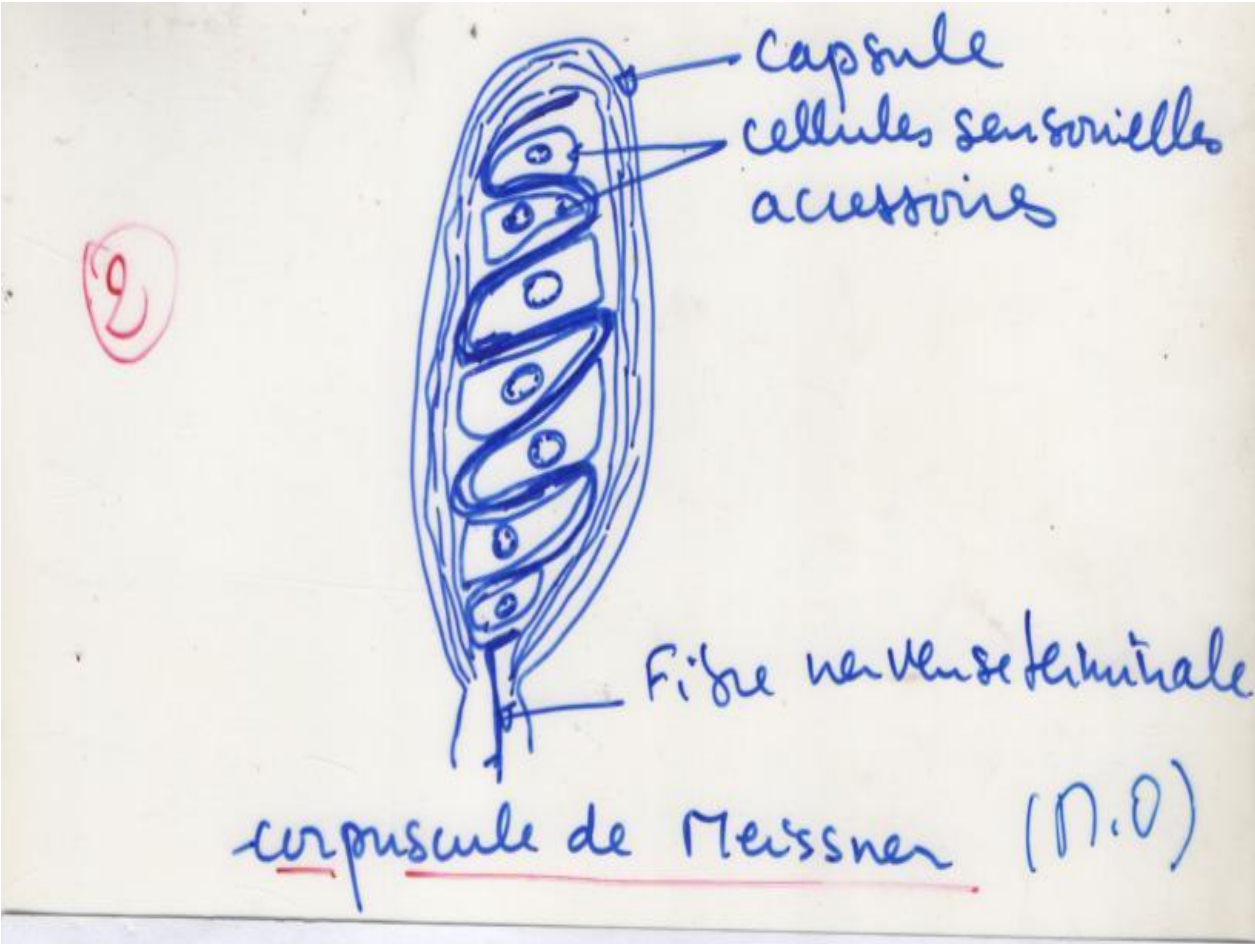 capsule
cellules sensorielles
accessoires
2
Fibre nerveuse terminale
corpuscule de Meissner (M.O)